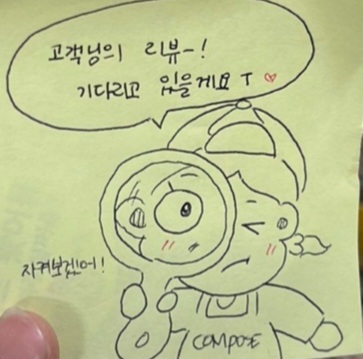 고객닝의 리뷰-!
기다리고 있을게요 T ♡
지켜보겠어!
COMPOSE